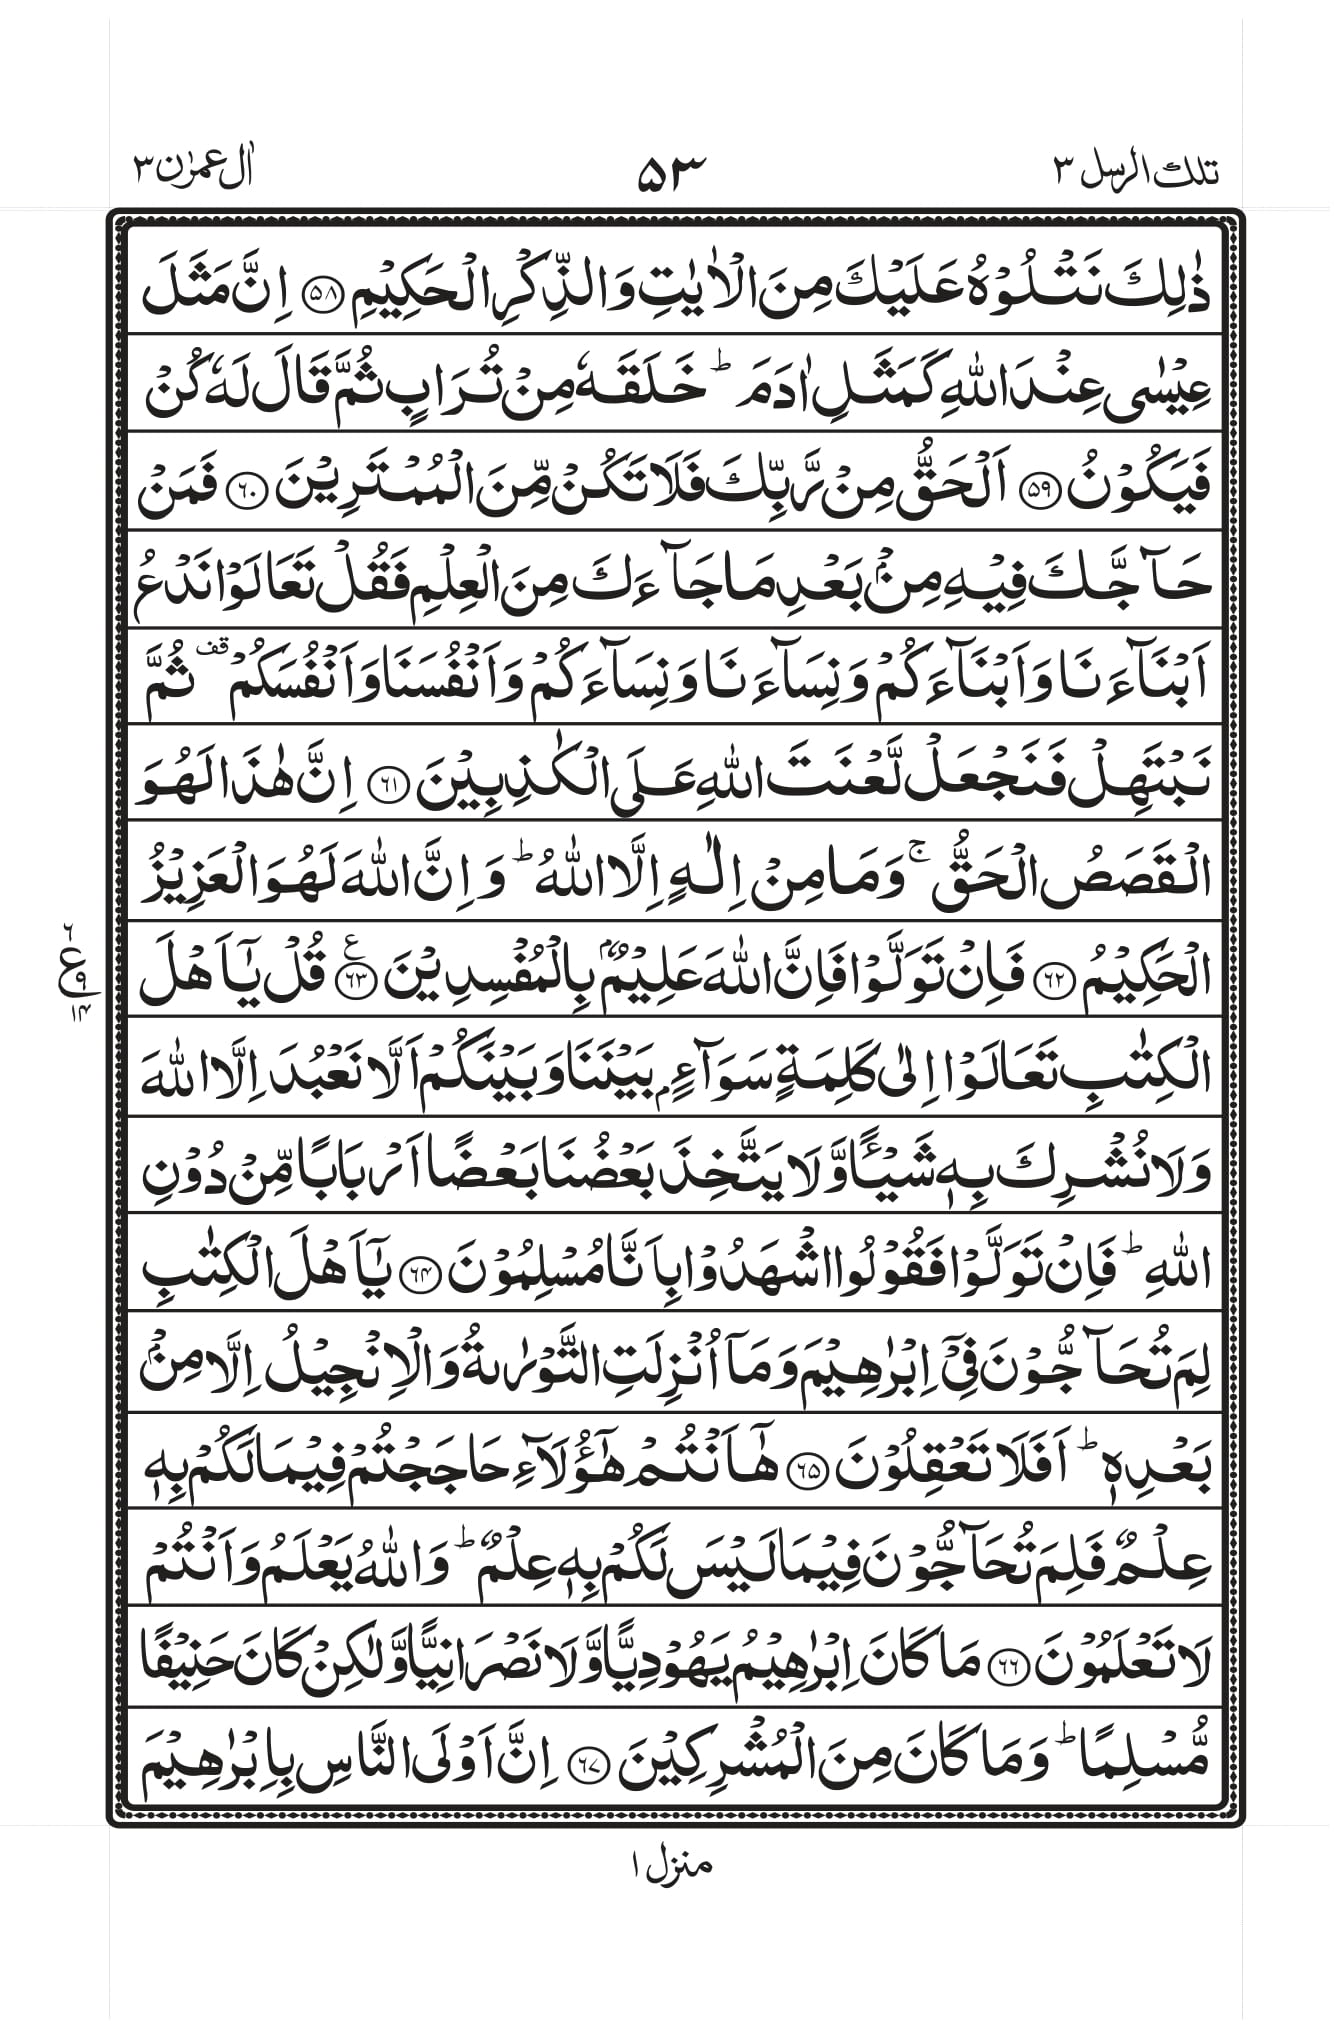 تلك الرسل ٣
٥٣
اٰل عمرٰن ٣
ذٰلِكَ نَتْلُوْهُ عَلَيْكَ مِنَ الْاٰيٰتِ وَالذِّكْرِ الْحَكِيْمِ ۝٥٨ اِنَّ مَثَلَ
عِيْسٰى عِنْدَ اللّٰهِ كَمَثَلِ اٰدَمَ ؕ خَلَقَهٗ مِنْ تُرَابٍ ثُمَّ قَالَ لَهٗ كُنْ
فَيَكُوْنُ ۝٥٩ اَلْحَقُّ مِنْ رَّبِّكَ فَلَا تَكُنْ مِّنَ الْمُمْتَرِيْنَ ۝٦٠ فَمَنْ
حَآجَّكَ فِيْهِ مِنْۢ بَعْدِ مَا جَآءَكَ مِنَ الْعِلْمِ فَقُلْ تَعَالَوْا نَدْعُ
اَبْنَآءَنَا وَاَبْنَآءَكُمْ وَنِسَآءَنَا وَنِسَآءَكُمْ وَاَنْفُسَنَا وَاَنْفُسَكُمْ قف ثُمَّ
نَبْتَهِلْ فَنَجْعَلْ لَّعْنَتَ اللّٰهِ عَلَى الْكٰذِبِيْنَ ۝٦١ اِنَّ هٰذَا لَهُوَ
الْقَصَصُ الْحَقُّ ۚ وَمَا مِنْ اِلٰهٍ اِلَّا اللّٰهُ ؕ وَاِنَّ اللّٰهَ لَهُوَ الْعَزِيْزُ
الْحَكِيْمُ ۝٦٢ فَاِنْ تَوَلَّوْا فَاِنَّ اللّٰهَ عَلِيْمٌۢ بِالْمُفْسِدِيْنَ ۝٦٣ ع قُلْ يٰۤاَهْلَ
٦
ع
٩
١٤
الْكِتٰبِ تَعَالَوْا اِلٰى كَلِمَةٍ سَوَآءٍۭ بَيْنَنَا وَبَيْنَكُمْ اَلَّا نَعْبُدَ اِلَّا اللّٰهَ
وَلَا نُشْرِكَ بِهٖ شَيْـًٔا وَّلَا يَتَّخِذَ بَعْضُنَا بَعْضًا اَرْبَابًا مِّنْ دُوْنِ
اللّٰهِ ؕ فَاِنْ تَوَلَّوْا فَقُوْلُوا اشْهَدُوْا بِاَنَّا مُسْلِمُوْنَ ۝٦٤ يٰۤاَهْلَ الْكِتٰبِ
لِمَ تُحَآجُّوْنَ فِيْۤ اِبْرٰهِيْمَ وَمَاۤ اُنْزِلَتِ التَّوْرٰىةُ وَالْاِنْجِيْلُ اِلَّا مِنْۢ
بَعْدِهٖ ؕ اَفَلَا تَعْقِلُوْنَ ۝٦٥ هٰۤاَنْتُمْ هٰۤؤُلَآءِ حَاجَجْتُمْ فِيْمَا لَكُمْ بِهٖ
عِلْمٌ فَلِمَ تُحَآجُّوْنَ فِيْمَا لَيْسَ لَكُمْ بِهٖ عِلْمٌ ؕ وَاللّٰهُ يَعْلَمُ وَاَنْتُمْ
لَا تَعْلَمُوْنَ ۝٦٦ مَا كَانَ اِبْرٰهِيْمُ يَهُوْدِيًّا وَّلَا نَصْرَانِيًّا وَّلٰكِنْ كَانَ حَنِيْفًا
مُّسْلِمًا ؕ وَمَا كَانَ مِنَ الْمُشْرِكِيْنَ ۝٦٧ اِنَّ اَوْلَى النَّاسِ بِاِبْرٰهِيْمَ
منزل ١